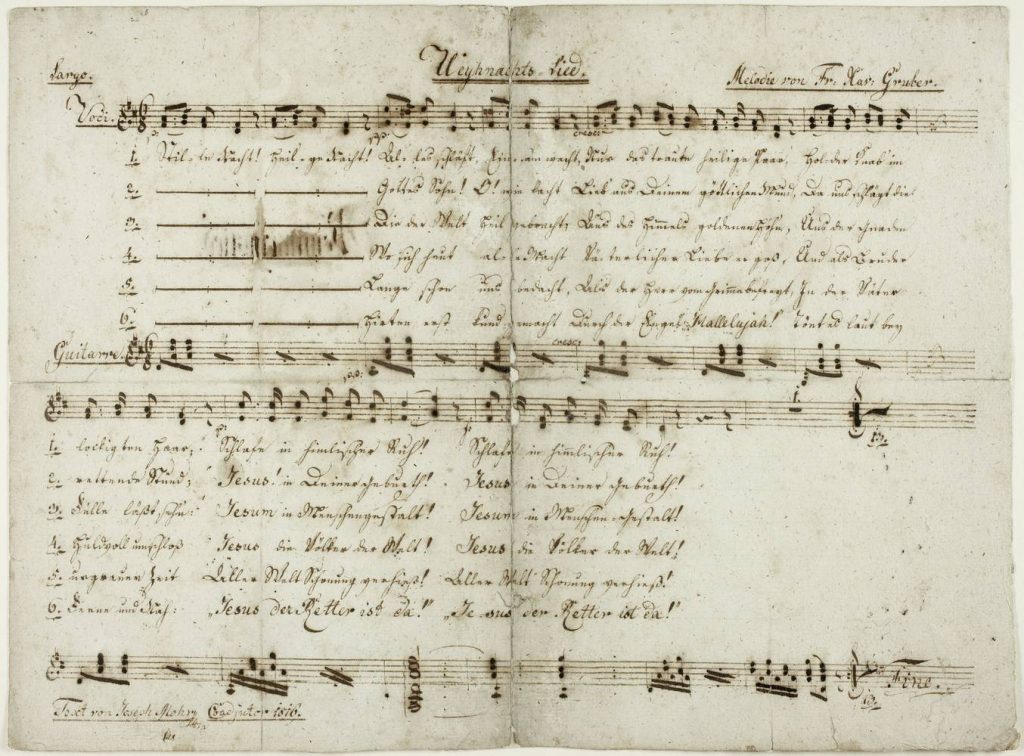 Weyhnachts-Lied.
Largo.
Melodie von Fr. Xav. Gruber.
Voci.
pp.
cresc:
1. Stil-le Nacht! Heil-ge Nacht! Al-les schläft, Ein-sam wacht, Nur das traute heilige Paar, Holder Knab im
2. Gottes Sohn! O! wie lacht Lieb aus Deinem göttlichen Mund, Da uns schlägt die
3. Die der Welt Heil gebracht; Aus des Himmels goldenen Höhn, Aus der Gnaden
4. Wo sich heut alle Macht Väterlicher Liebe ergoß, Und als Bruder
5. Lange schon uns bedacht, Als der Herr vom Grimme befreyt, In der Väter
6. Hirten erst kundgemacht Durch der Engel "Hallelujah!" Tönt es laut bey
Guitarre.
cresc:
pp.
1. lockigten Haar; Schlafe in himlischer Ruh! Schlafe in himmlischer Ruh!
2. rettende Stund; Jesus! in Deiner Geburth! Jesus in Deiner Geburth!
3. Fülle läßt sehn: Jesum in Menschengestalt! Jesum in Menschen-Gestalt!
4. Huldvoll umschloß Jesus die Völker der Welt! Jesus die Völker der Welt!
5. urgrauer Zeit Aller Welt Schonung verhieß! Aller Welt Schonung verhieß!
6. Ferne und Nah: "Jesus der Retter ist da!" "Jesus der Retter ist da!"
Fine.
Text von Joseph Mohr Coadjutor 1816.